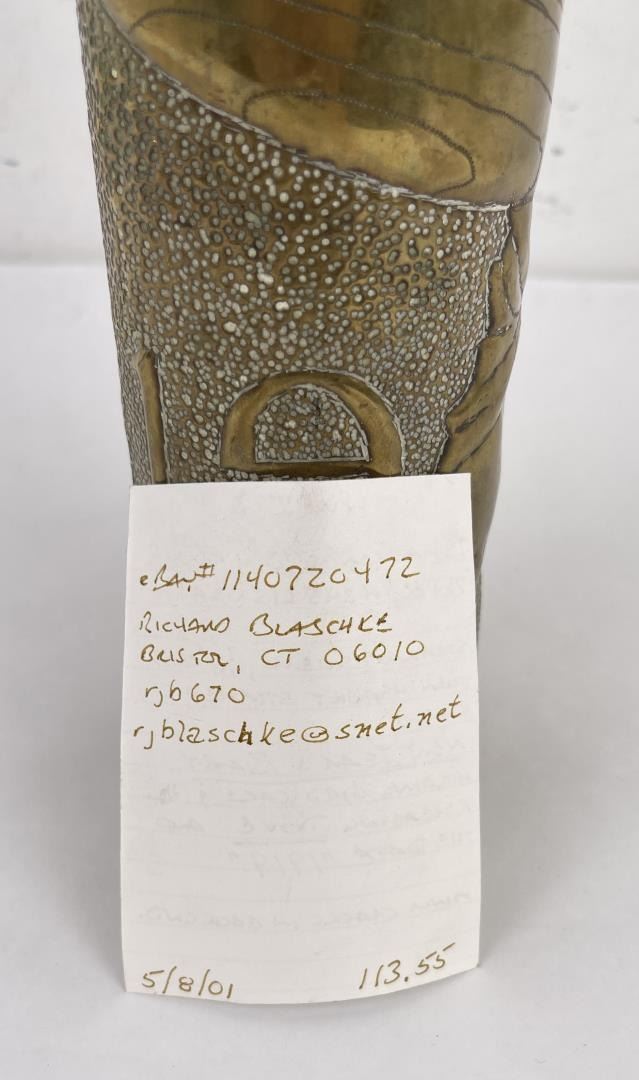 eBay# 1140720472
RICHARD BLASCHKE
BRISTOL, CT 06010
rjb670
rjblaschke@snet.net
5/8/01 113.55